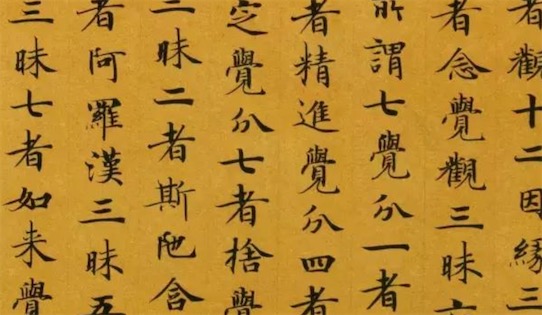 者觀十二因緣三
者念覺觀三昧六
所謂七覺分一者
者精進覺分四者
定覺分七者捨覺
三昧二者斯陁含
者阿羅漢三昧五
三昧七者如来覺